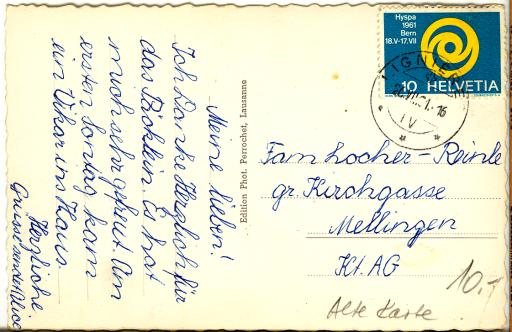 Meine lieben!
Ich danke Herzlich für
das Päcklein. Es hat
mich sehr gefreut. Am
ersten Sontag kam
ein Vikar ins Haus.
Herzliche
Grüsse sendet Alice
Edition Phot. Perrochet, Lausanne
Hyspa
1961
Bern
18.V-17.VII
10 HELVETIA
LIGNIÈRES
Fam. Locher-Reinle
gr. Kirchgasse
Mellingen
Kt. AG
10.-
Alte Karte